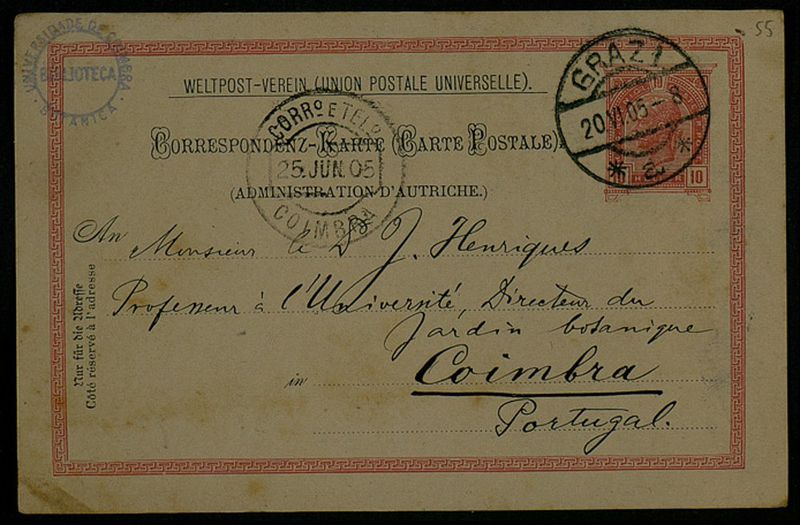 55
UNIVERSIDADE DE COIMBRA
BIBLIOTECA
BOTANICA
WELTPOST-VEREIN (UNION POSTALE UNIVERSELLE).
GRAZ 1
20 VI 05 - 8
* a *
CORRO E TELO
25 JUN. 05
COIMBRA
CORRESPONDENZ-KARTE (CARTE POSTALE)
(ADMINISTRATION D'AUTRICHE.)
10 10
An Monsieur le Dr J. Henriques
Professeur à l'Université, Directeur du
Jardin botanique
in Coimbra
Portugal.
Nur für die Adresse
Côté réservé à l'adresse